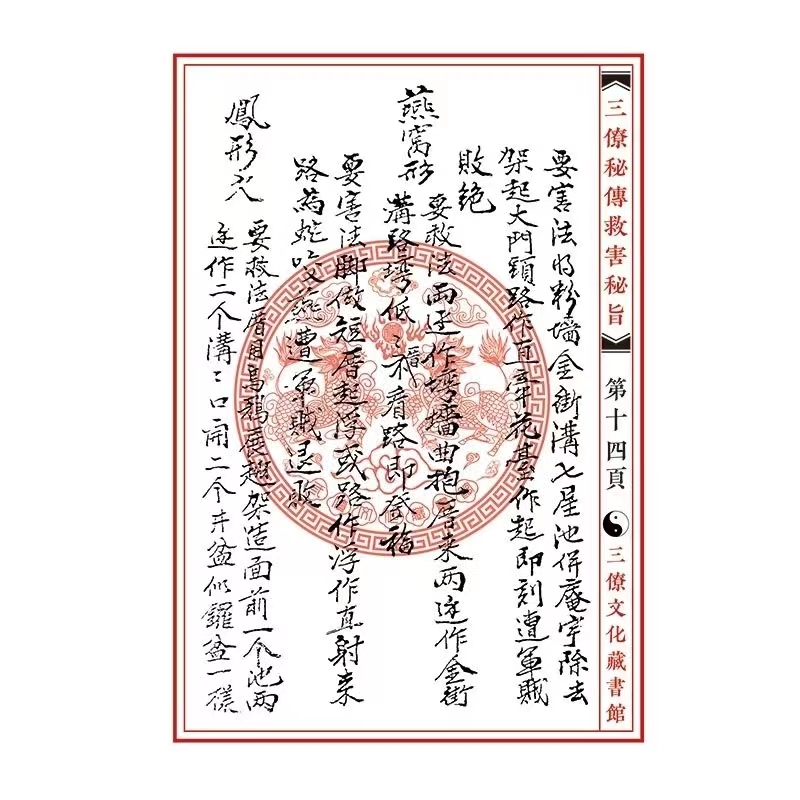 三僚秘傳救害秘旨
第十四頁
三僚文化藏書館
要害法將粉墻金街溝七星池併庵宇除去
架起大門頭路作直三年花甚作起即刻遭軍賊
敗绝
燕窩形
要救法兩边作塆墻曲抱厝来两边作金街
溝路塆低不看路即發福
要害法脚做短厝起浮或路作浮作直射来
路為蛇咬燕遭軍賊退敗
鳳形穴
要救法厝用烏鴉展翅架造面前一个池两
边作二个溝溝口開二个井盆似鑼盆一樣